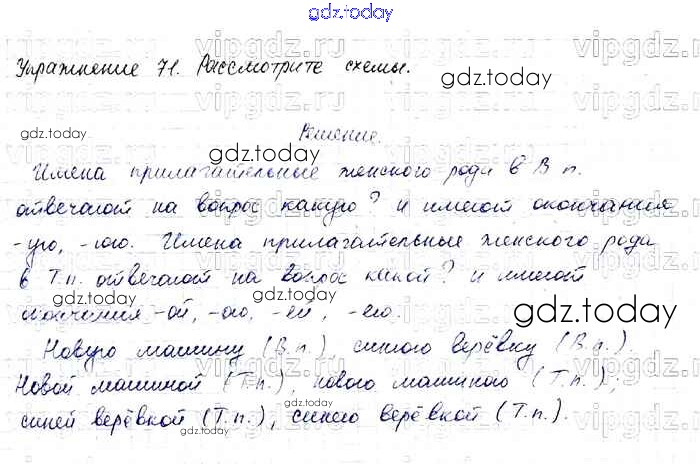 gdz.today
vipgdz.ru vipgdz.ru
Упражнение 71. Рассмотрите схемы.
gdz.today
gdz.today
Решение.
gdz.today
Имена прилагательные женского рода в В п.
gdz.today
отвечают на вопрос какую? и имеют окончания
-ую, -юю. Имена прилагательные женского рода
в Т.п. отвечают на вопрос какой? и имеют
gdz.today
gdz.today
окончания -ой, -ою, -ей, -ею.
Новую машину (В.п.), синюю верёвку (В.п.).
gdz.today
Новой машиной (Т.п.), новою машиною (Т.п.),
gdz.today
синей верёвкой (Т.п.), синею верёвкой (Т.п.).
gdz.today